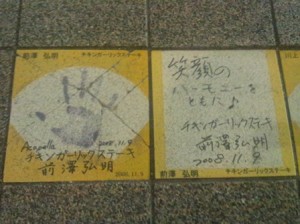 前澤 弘明
チキンガーリックステーキ
Acapella
2008.11.9
チキンガーリックステーキ
前澤弘明
2008.11.9
笑顔の
ハーモニーを
ともに♪
チキンガーリックステーキ
前澤弘明
2008.11.9
前澤 弘明
チキンガーリックステーキ